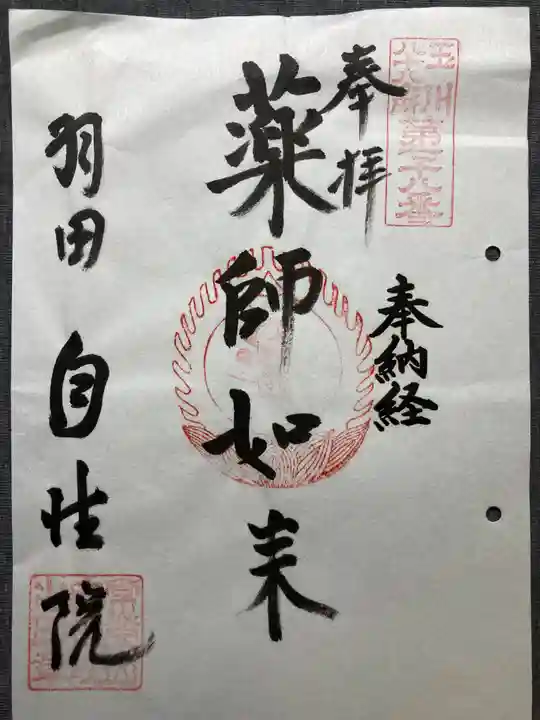 玉川
八十八所
第七十八番
奉拝
奉納経
薬師如来
羽田 自性院